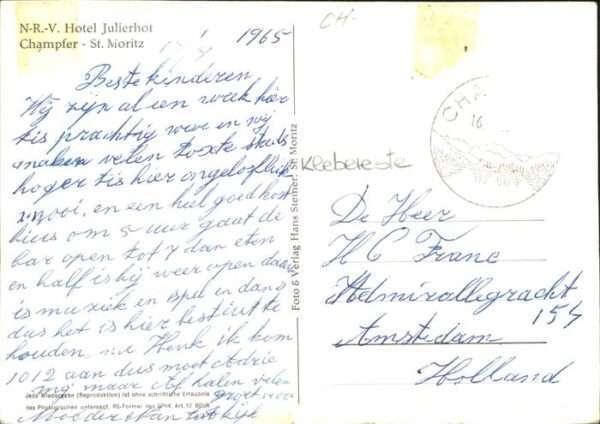 N-R.-V. Hotel Julierhof
Champfer - St. Moritz
1965
Beste kinderen
Wij zijn al een week hier
tis prachtig weer en wij
maken velen
hoger tis hier ongelooflijk
mooi, en een heel goed kost
huis om 5 uur gaat de
bar open tot 7 dan eten
en half is hij weer open daar
is muziek en spel en dans
dus het is hier best uit te
houden. nu Henk ik kom
10 12 aan dus moet Adrie
mij maar Af halen velen
groeten van
Moeder
Jede Wiedergabe (Reproduktion) ist ohne schriftliche Erlaubnis
des Photographen untersagt. RS-Former des URHK. Art. 12 BGUR
Foto & Verlag Hans Steiner, St. Moritz
CH-
Klebereste
CHA
16
De Heer
H C Franc
Admirallegracht
154
Amsterdam
Holland